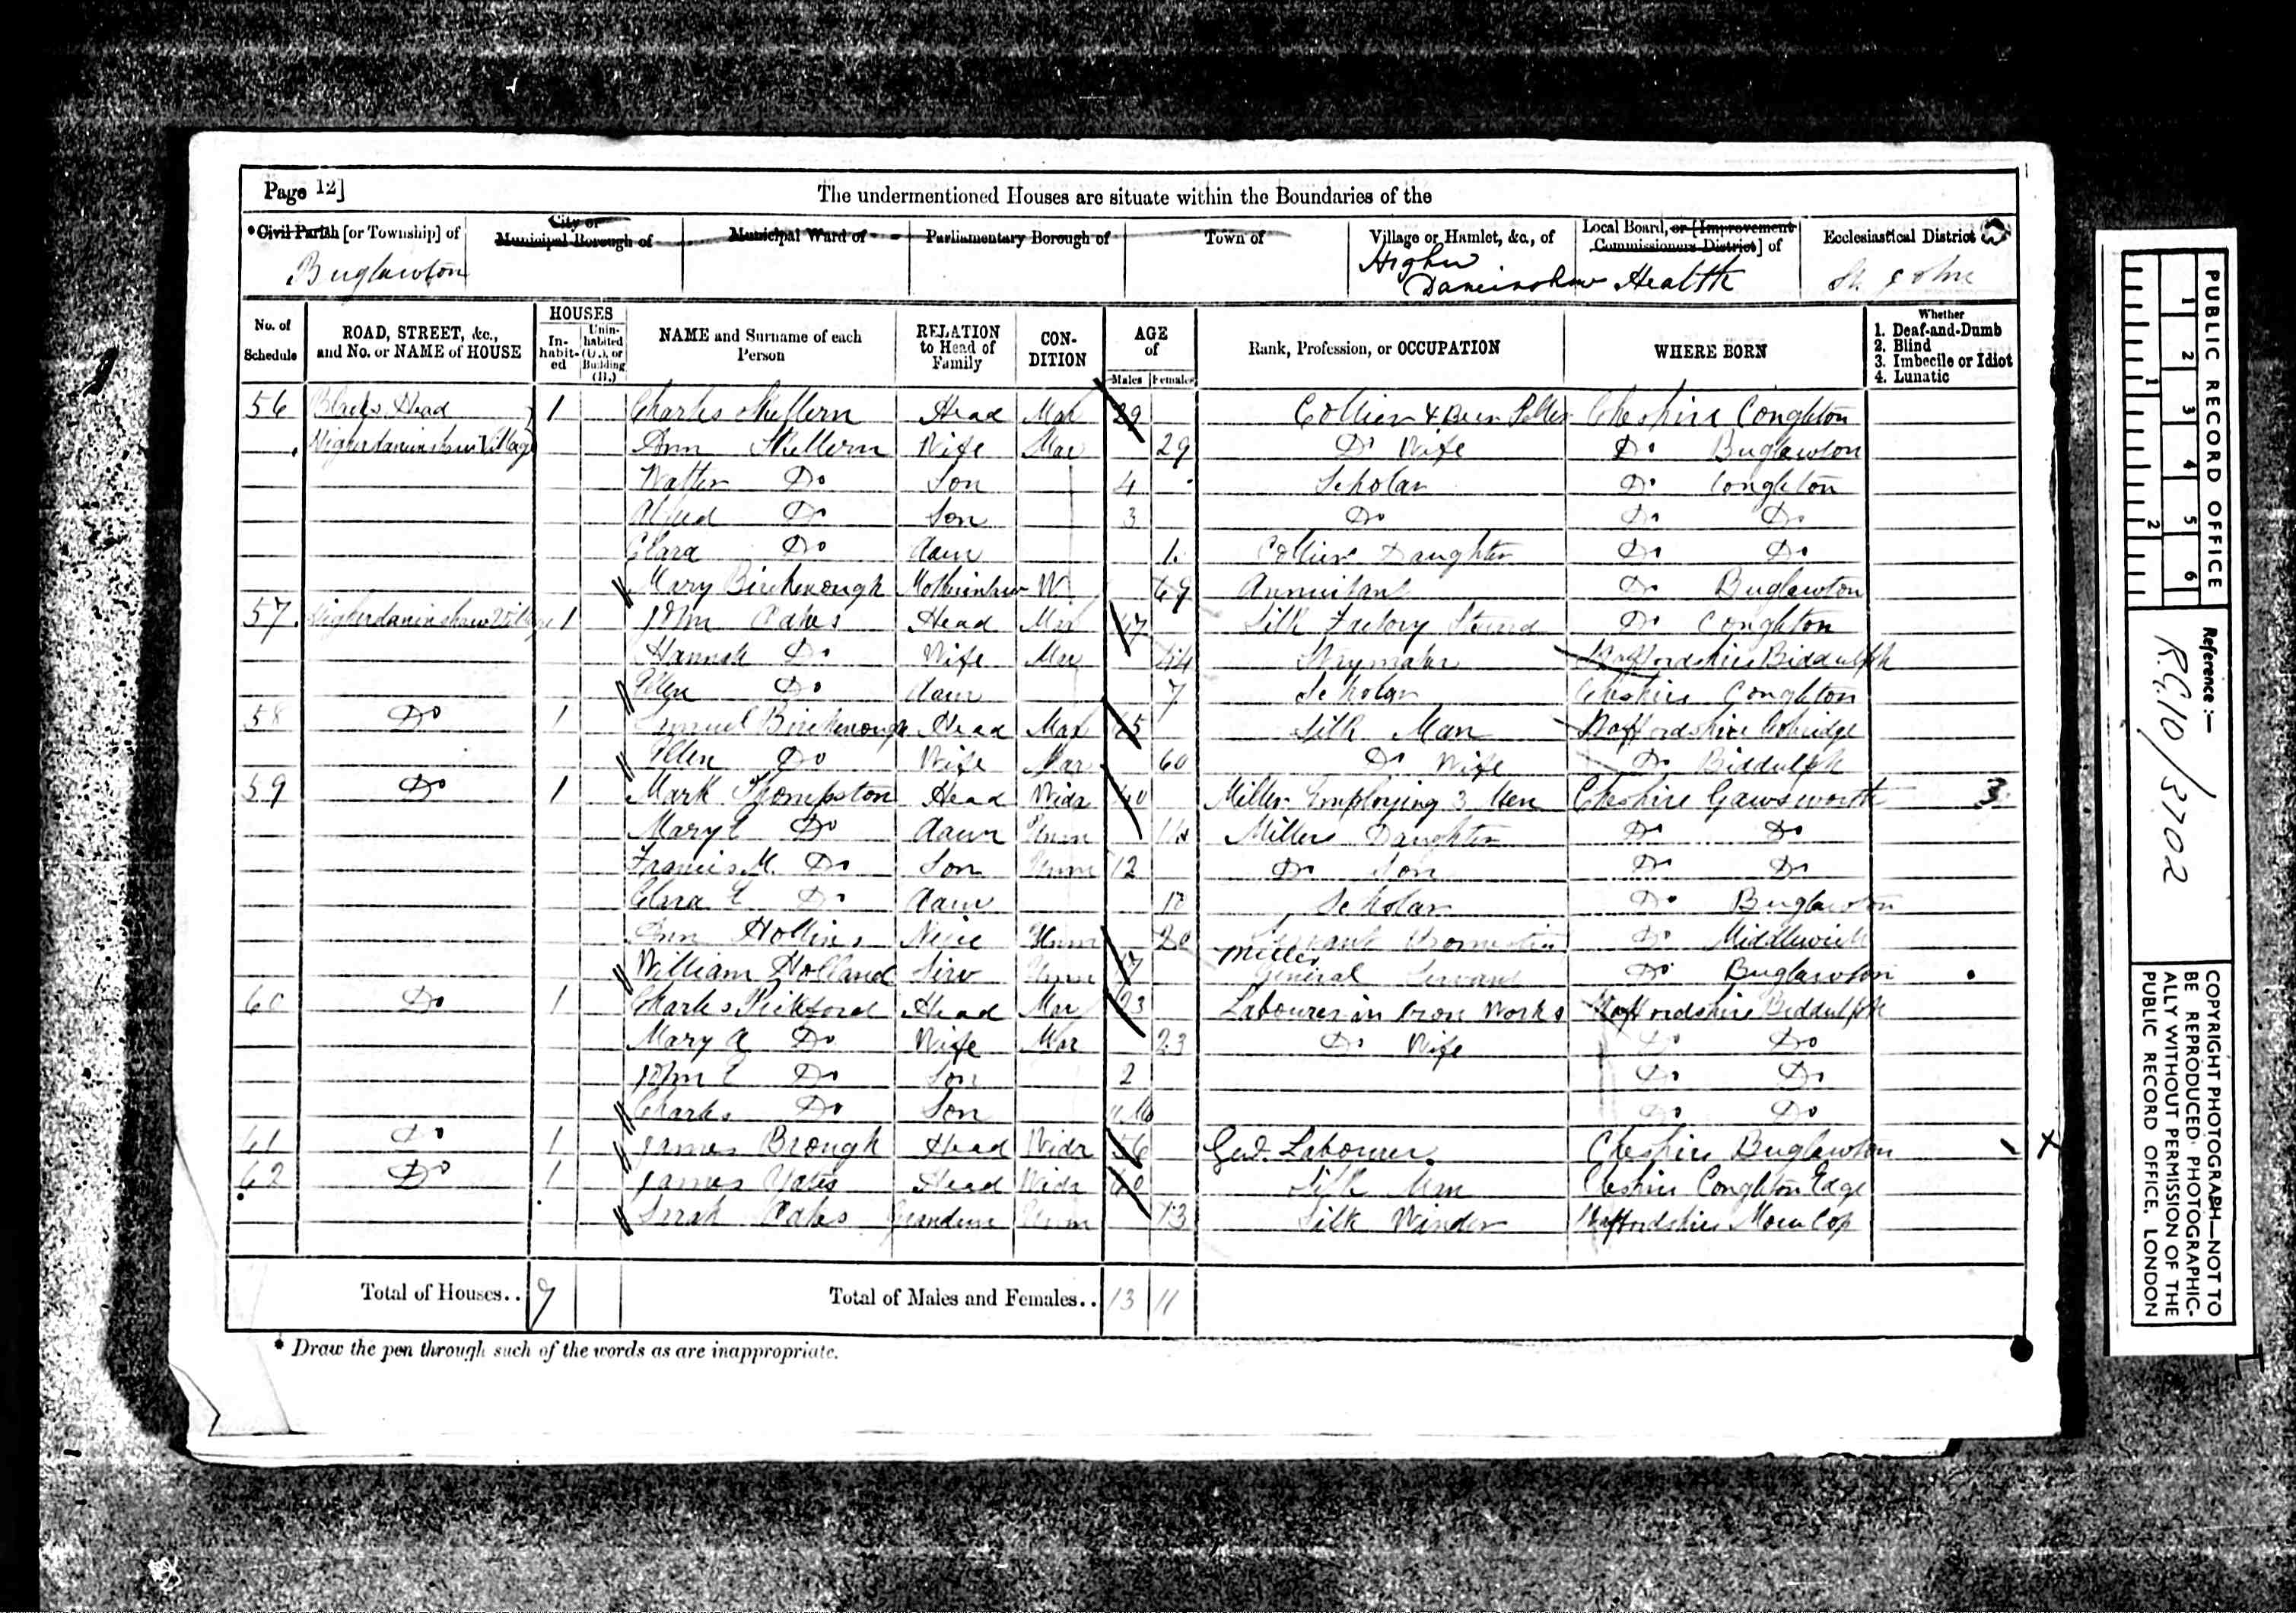 Page 12]
The undermentioned Houses are situate within the Boundaries of the
*Civil Parish [or Township] of
City or Municipal Borough of
Municipal Ward of
Parliamentary Borough of
Town of
Village or Hamlet, &c., of
Local Board, or [Improvement Commissioners District] of
Ecclesiastical District
Buglawton
Higher
Daneinshaw
Health
St. John
No. of Schedule
ROAD, STREET, &c., and No. or NAME of HOUSE
HOUSES
Inhabited
Uninhabited (U.), or Building (B.)
NAME and Surname of each Person
RELATION to Head of Family
CONDITION
AGE of
Males
Females
Rank, Profession, or OCCUPATION
WHERE BORN
Whether
1. Deaf-and-Dumb
2. Blind
3. Imbecile or Idiot
4. Lunatic
56 Blacks Head 1 Charles Skellern Head Mar 29 Collier & Beer Seller Cheshire Congleton
Higherdaneinshaw Village Ann Skellern Wife Mar 29 Do Wife Do Buglawton
Walter Do Son 4 Scholar Do Congleton
Alfred Do Son 3 Do Do Do
Clara Do Daur 1 Colliers Daughter Do Do
Mary Birchenough Motherinlaw W 69 Annuitant Do Buglawton
57 Higherdaneinshaw Village 1 John Oakes Head Mar 47 Silk Factory Do Congleton
Hannah Do Wife Mar 44 Staymaker Staffordshire Biddulph
Ellen Do Daur 7 Scholar Cheshire Congleton
58 Do 1 Samuel Birchenough Head Mar 65 Silk Man Staffordshire Cobridge
Ellen Do Wife Mar 60 Do Wife Do Biddulph
59 Do 1 Mark Thompston Head Widr 40 Miller Employing 3 Men Cheshire Gawsworth 3
Mary E Do Daur Unm 14 Millers Daughter Do Do
Francis M. Do Son Unm 12 Do Son Do Do
E Do Daur 10 Scholar Do Buglawton
Ann Hollins Niece Unm 20 Servant Domestic Do Middlewich
William Holland Serv Unm 17 Miller General Servant Do Buglawton
60 Do 1 Charles Pickford Head Mar 23 Labourer in Iron Works Staffordshire Biddulph
Mary A Do Wife Mar 23 Do Wife Do Do
John E Do Son 2 Do Do
Charles Do Son Do Do
61 Do 1 James Brough Head Widr 56 Labourer Cheshire Buglawton
62 Do 1 James Yates Head Widr 60 Silk Man Cheshire Congleton Edge
Sarah Oakes Unm 13 Silk Winder Staffordshire Mow Cop
Total of Houses.. 7
Total of Males and Females.. 13 11
* Draw the pen through such of the words as are inappropriate.
PUBLIC RECORD OFFICE
1 2 3 4 5 6
1 2
Reference :-
R.G.10/3702
COPYRIGHT PHOTOGRAPH—NOT TO
BE REPRODUCED PHOTOGRAPHIC-
ALLY WITHOUT PERMISSION OF THE
PUBLIC RECORD OFFICE, LONDON